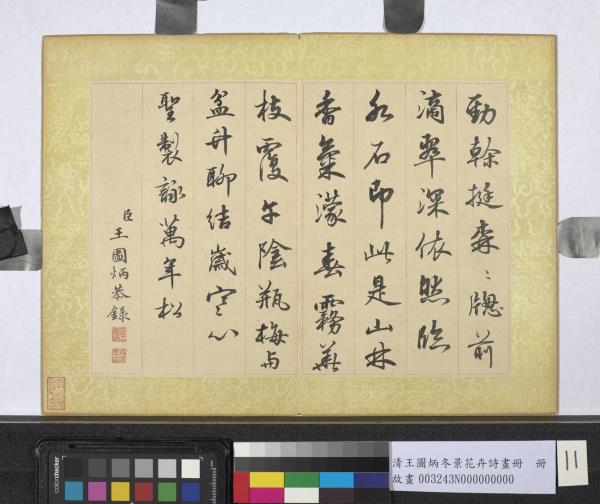 勁榦挺森〻牕前
滴翠深依然臨
水石即此是山林
香氣濛春霧
枝覆午陰瓶梅与
盆卉聊結歲寒心
聖製詠萬年松
臣王圖炳恭錄
colorchecker
清王圖炳冬景花卉詩畫冊 冊
故畫 003243N000000000
11